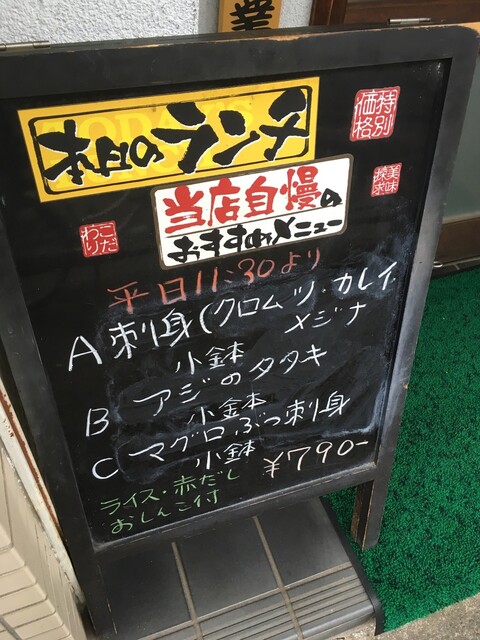 業
本日のランチ
TODAY'S
特別
価格
当店自慢の
おすすめメニュー
美味
探求
こだ
わり
平日11:30より
A 刺身(クロムツ・カレイ
メジナ
小鉢
B アジのタタキ
小鉢
C マグロぶつ刺身
小鉢
¥790-
ライス・赤だし
おしんこ付